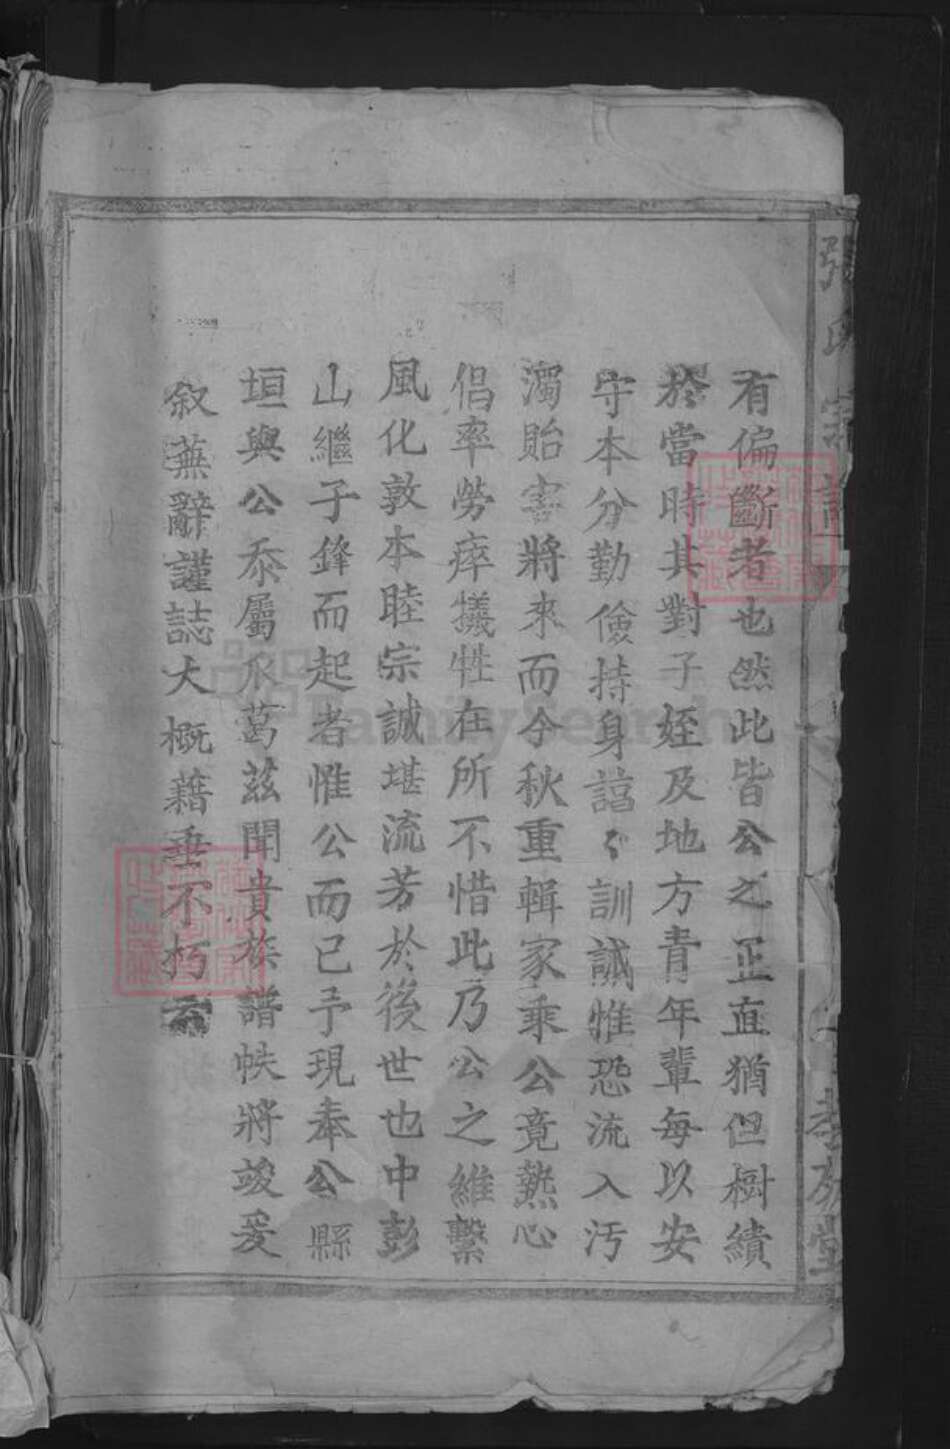 有偏斷者也然此皆公之正直猶但樹績
於當時其對子姪及地方青年輩每以安
守本分勤儉持身諄〻訓誡惟恐流入污
濁貽害將來而今秋重輯家乘公竟熱心
倡率勞瘁犧牲在所不惜此乃公之維繫
風化敦本睦宗誠堪流芳於後世也中彭
山繼子鋒而起者惟公而已予現奉公縣
垣與公忝屬瓜葛茲聞貴族譜帙將竣爰
敘蕪辭謹誌大概藉垂不朽云
張氏宗譜
孝友堂
FamilySearch